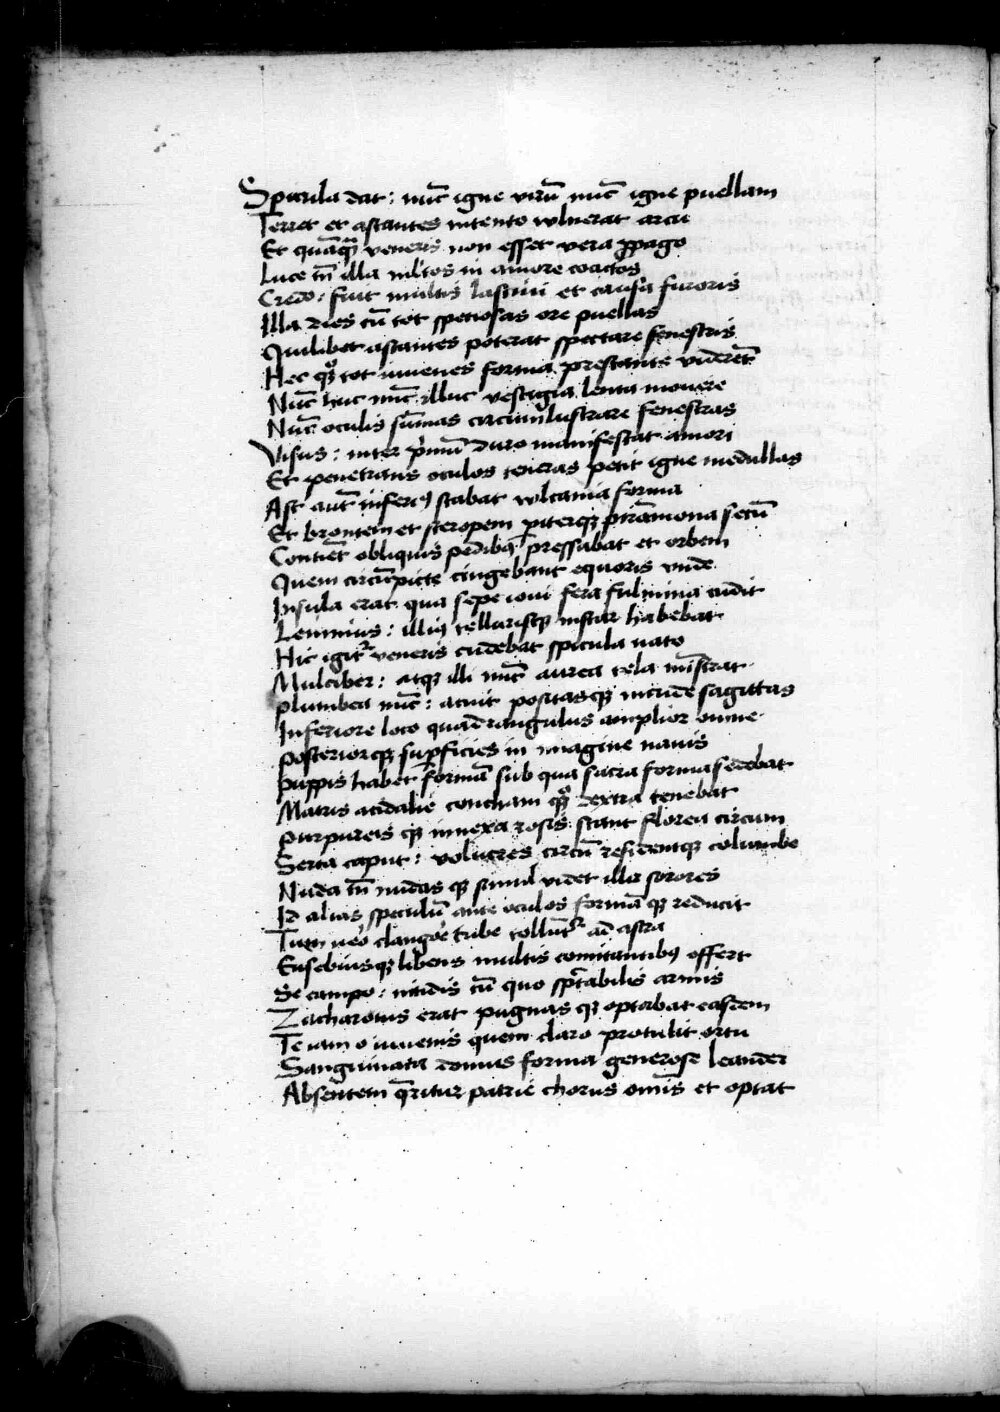 Spicula dat : nūc igne virū nūc igne puellam
Terret et astantes intento vulnerat arcu
Et quāqꝫ veneris non esset vera ꝓpago
Luce tn̄ illa in amore coactos
Credo : fuit multis lasciui et causa furoris
Illa dies cū tot speciosas ore puellas
Quilibet astantes poterat spectare fenestris
Hec qꝫ tot iuuenes forma prestante viderēt
Nūc huc nūc illuc vestigia lenta mouere
Nūc oculis sūmas circumlustrare fenestras
Visus : inter duro manifestat amori
Et penetrans oculos teneras petit igne medullas
Ast autē inferiꝰ stabat vulcania forma
Et brontem et steropem piterqꝫ pirāmona secū
Contiēt obliquis pedibꝫ pressabat et orbem
Quem circūpicte cingebant equoris vnde
Insula erat qua sepe ioui fera fulmina cudit
Lemnius : illiꝰ tellurisqꝫ instar habebat
Hic igitᷣ veneris cudebat spicula nato
Mulciber : atqꝫ illi nūc aurea tela mīstrat
plumbea nūc : acuit positasqꝫ incude sagittas
Inferiore loco quadrangulus amplior omne
posteriorqꝫ suꝑficies in imagine nauis
puppis habet formā sub qua sacra forma sedebat
Matris acidalie concham qꝫ dextra tenebat
purpureis qꝫ innexa rosis stant florea circum
Serta caput : volucres circū residentqꝫ columbe
Nuda tn̄ nudas qꝫ simul videt illa sorores
Id alias speculū ante oculos formā qꝫ reducit
Tum vero clangore tube tollūtᷣ ad astra
Eusebiusqꝫ libens multis comitantibꝰ offert
Se campo : nitidis cū quo spectabilis armis
Zacharotus erat pugnas qꝫ optabat easdem
Te iam o iuuenis quem claro protulit ortu
Sanguinata domus forma generose leander
Absentem q̄ritur patrie chorus omīs et optat